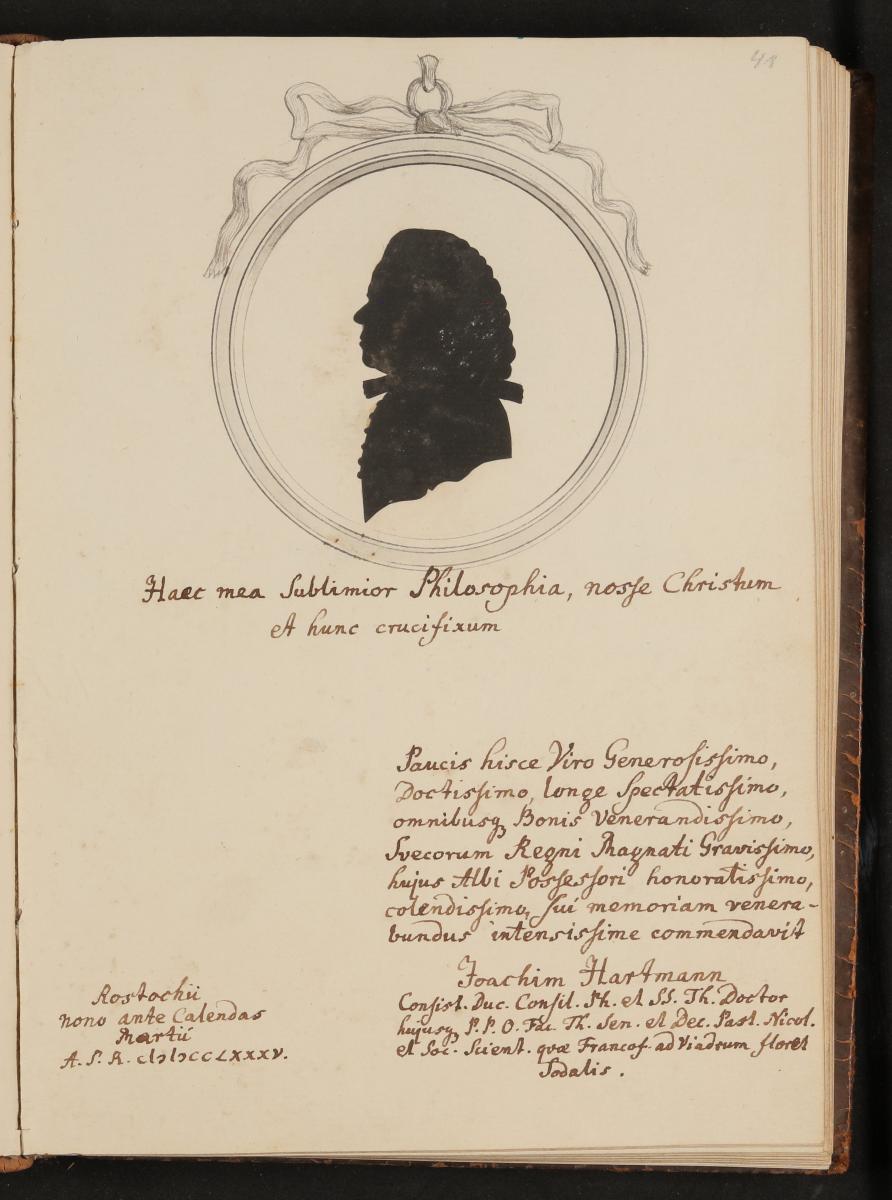 48
Haec mea Sublimior Philosophia, nosse Christum
et hunc crucifixum
Paucis hisce Viro Generosissimo,
Doctissimo, longe Spectatissimo,
omnibusq Bonis Venerandissimo,
Svecorum Regni Magnati Gravissimo,
hujus Albi Possessori honoratissimo,
colendissimo, sui memoriam venera-
bundus intensissime commendavit
Joachim Hartmann
Consist. Duc. Consil. Ph. et SS. Th. Doctor
hujusq P. P. O. Fac. Th. Sen. et Dec. Past. Nicol.
et Soc. Scient. quæ Francof. ad Viadrum floret
Sodalis.
Rostochii
nono ante Calendas
Martii
A. S. R. cIɔIɔCCLXXXV.